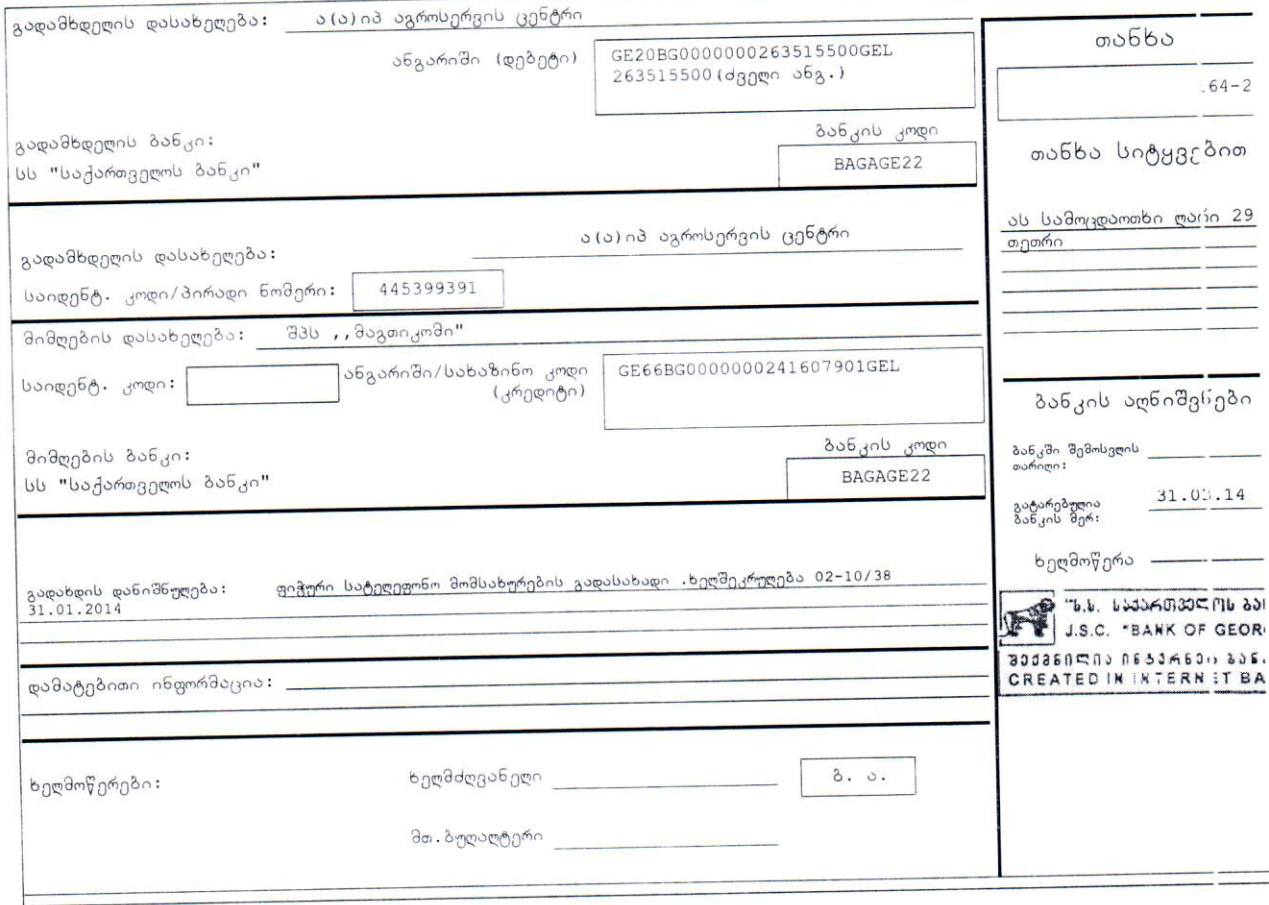 გადამხდელის დასახელება: ა(ა)იპ აგროსერვის ცენტრი
ანგარიში (დებეტი)
GE20BG0000000263515500GEL
263515500(ძველი ანგ.)
გადამხდელის ბანკი:
სს "საქართველოს ბანკი"
ბანკის კოდი
BAGAGE22
გადამხდელის დასახელება: ა(ა)იპ აგროსერვის ცენტრი
საიდენტ. კოდი/პირადი ნომერი: 445399391
მიმღების დასახელება: შპს ,,მაგთიკომი"
საიდენტ. კოდი:
ანგარიში/სახაზინო კოდი
(კრედიტი)
GE66BG0000000241607901GEL
მიმღების ბანკი:
სს "საქართველოს ბანკი"
ბანკის კოდი
BAGAGE22
გადახდის დანიშნულება: ფიჭური სატელეფონო მომსახურების გადასახადი .ხელშეკრულება 02-10/38
31.01.2014
დამატებითი ინფორმაცია:
ხელმოწერები:
ხელმძღვანელი
ბ. ა.
მთ.ბუღალტერი
თანხა
64-2
თანხა სიტყვებით
ას სამოცდაოთხი ლარი 29
თეთრი
ბანკის აღნიშვნები
ბანკში შემოსვლის
თარიღი:
გატარებულია
ბანკის მერ:
31.03.14
ხელმოწერა
"ს.ს. საქართველოს ბა
J.S.C. "BANK OF GEOR
შექმნილია ინტერნეტ ბან
CREATED IN INTERNET BA